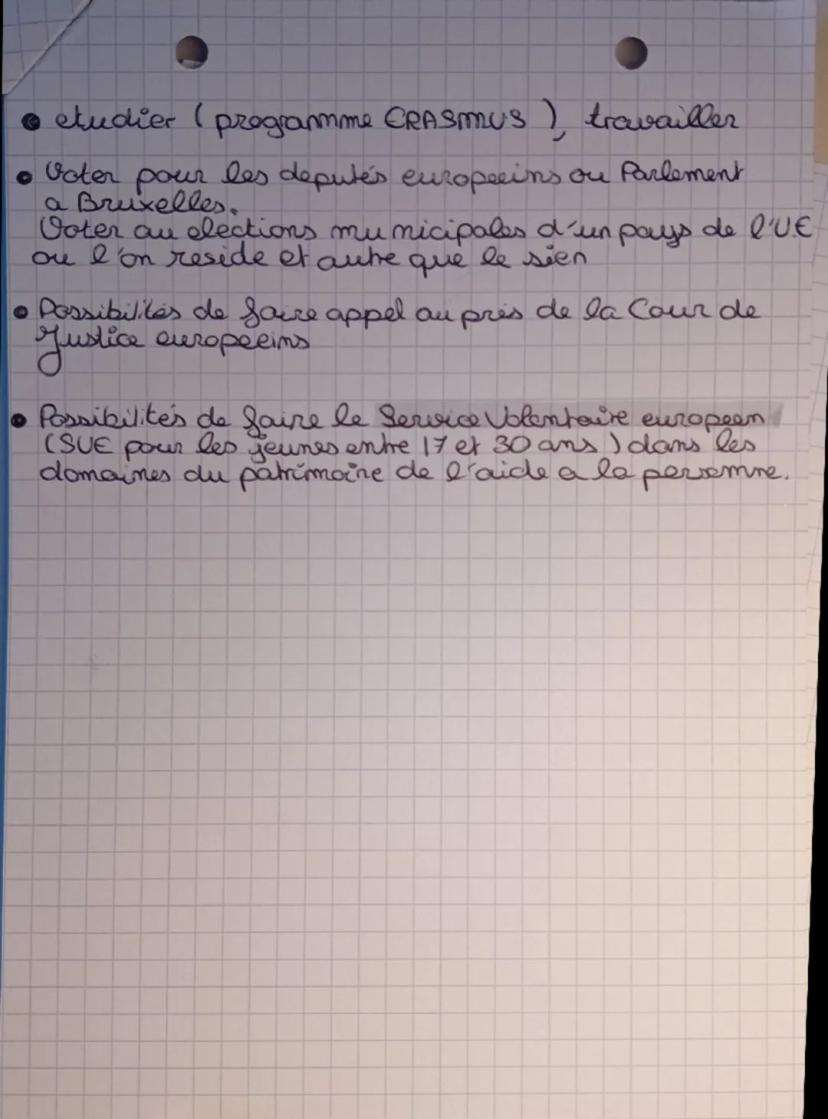 • etudier (programme ERASMUS), travailler
• Voter pour les deputés europeeins ou Parlement
a Bruxelles.
Voter au elections municipales d'un pays de l'UE
ou l'on reside et autre que le sien
• Possibilités de faire appel au près de la Cour de
Justice europeeins
• Possibilités de faire le Service Volontaire europeen
(SUE pour les jeunes entre 17 et 30 ans) dans les
domaines du patrimoine de l'aide a la personne.